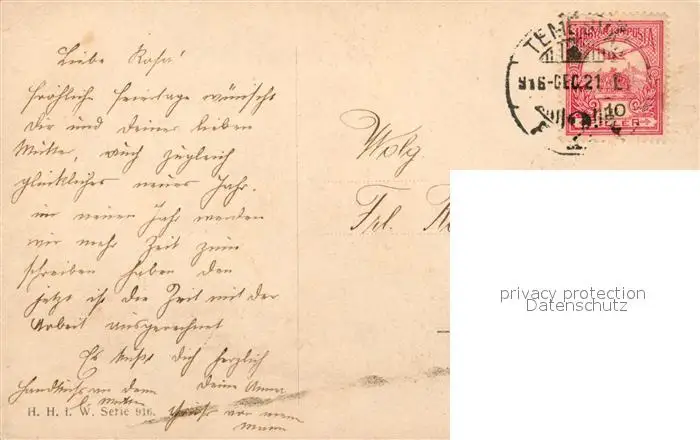 Liebe Rosa!
fröhliche Feiertage wünscht
Dir und deiner lieben
Mutter, auch zugleich
glückliches neues Jahr.
im neuen Jahr werden
wir mehr Zeit zum
schreiben haben den
jetzt ist die Zeit mit der
Arbeit ausgerechnet
Es küsst Dich herzlich
deine Anna
Handkuss an deine
l. Mutter
von meine
H. H. i. W. Serie 916.
Wolg.
Frl.
MAGYAR KIR. POSTA
916-DEC.21
10
privacy protection
Datenschutz